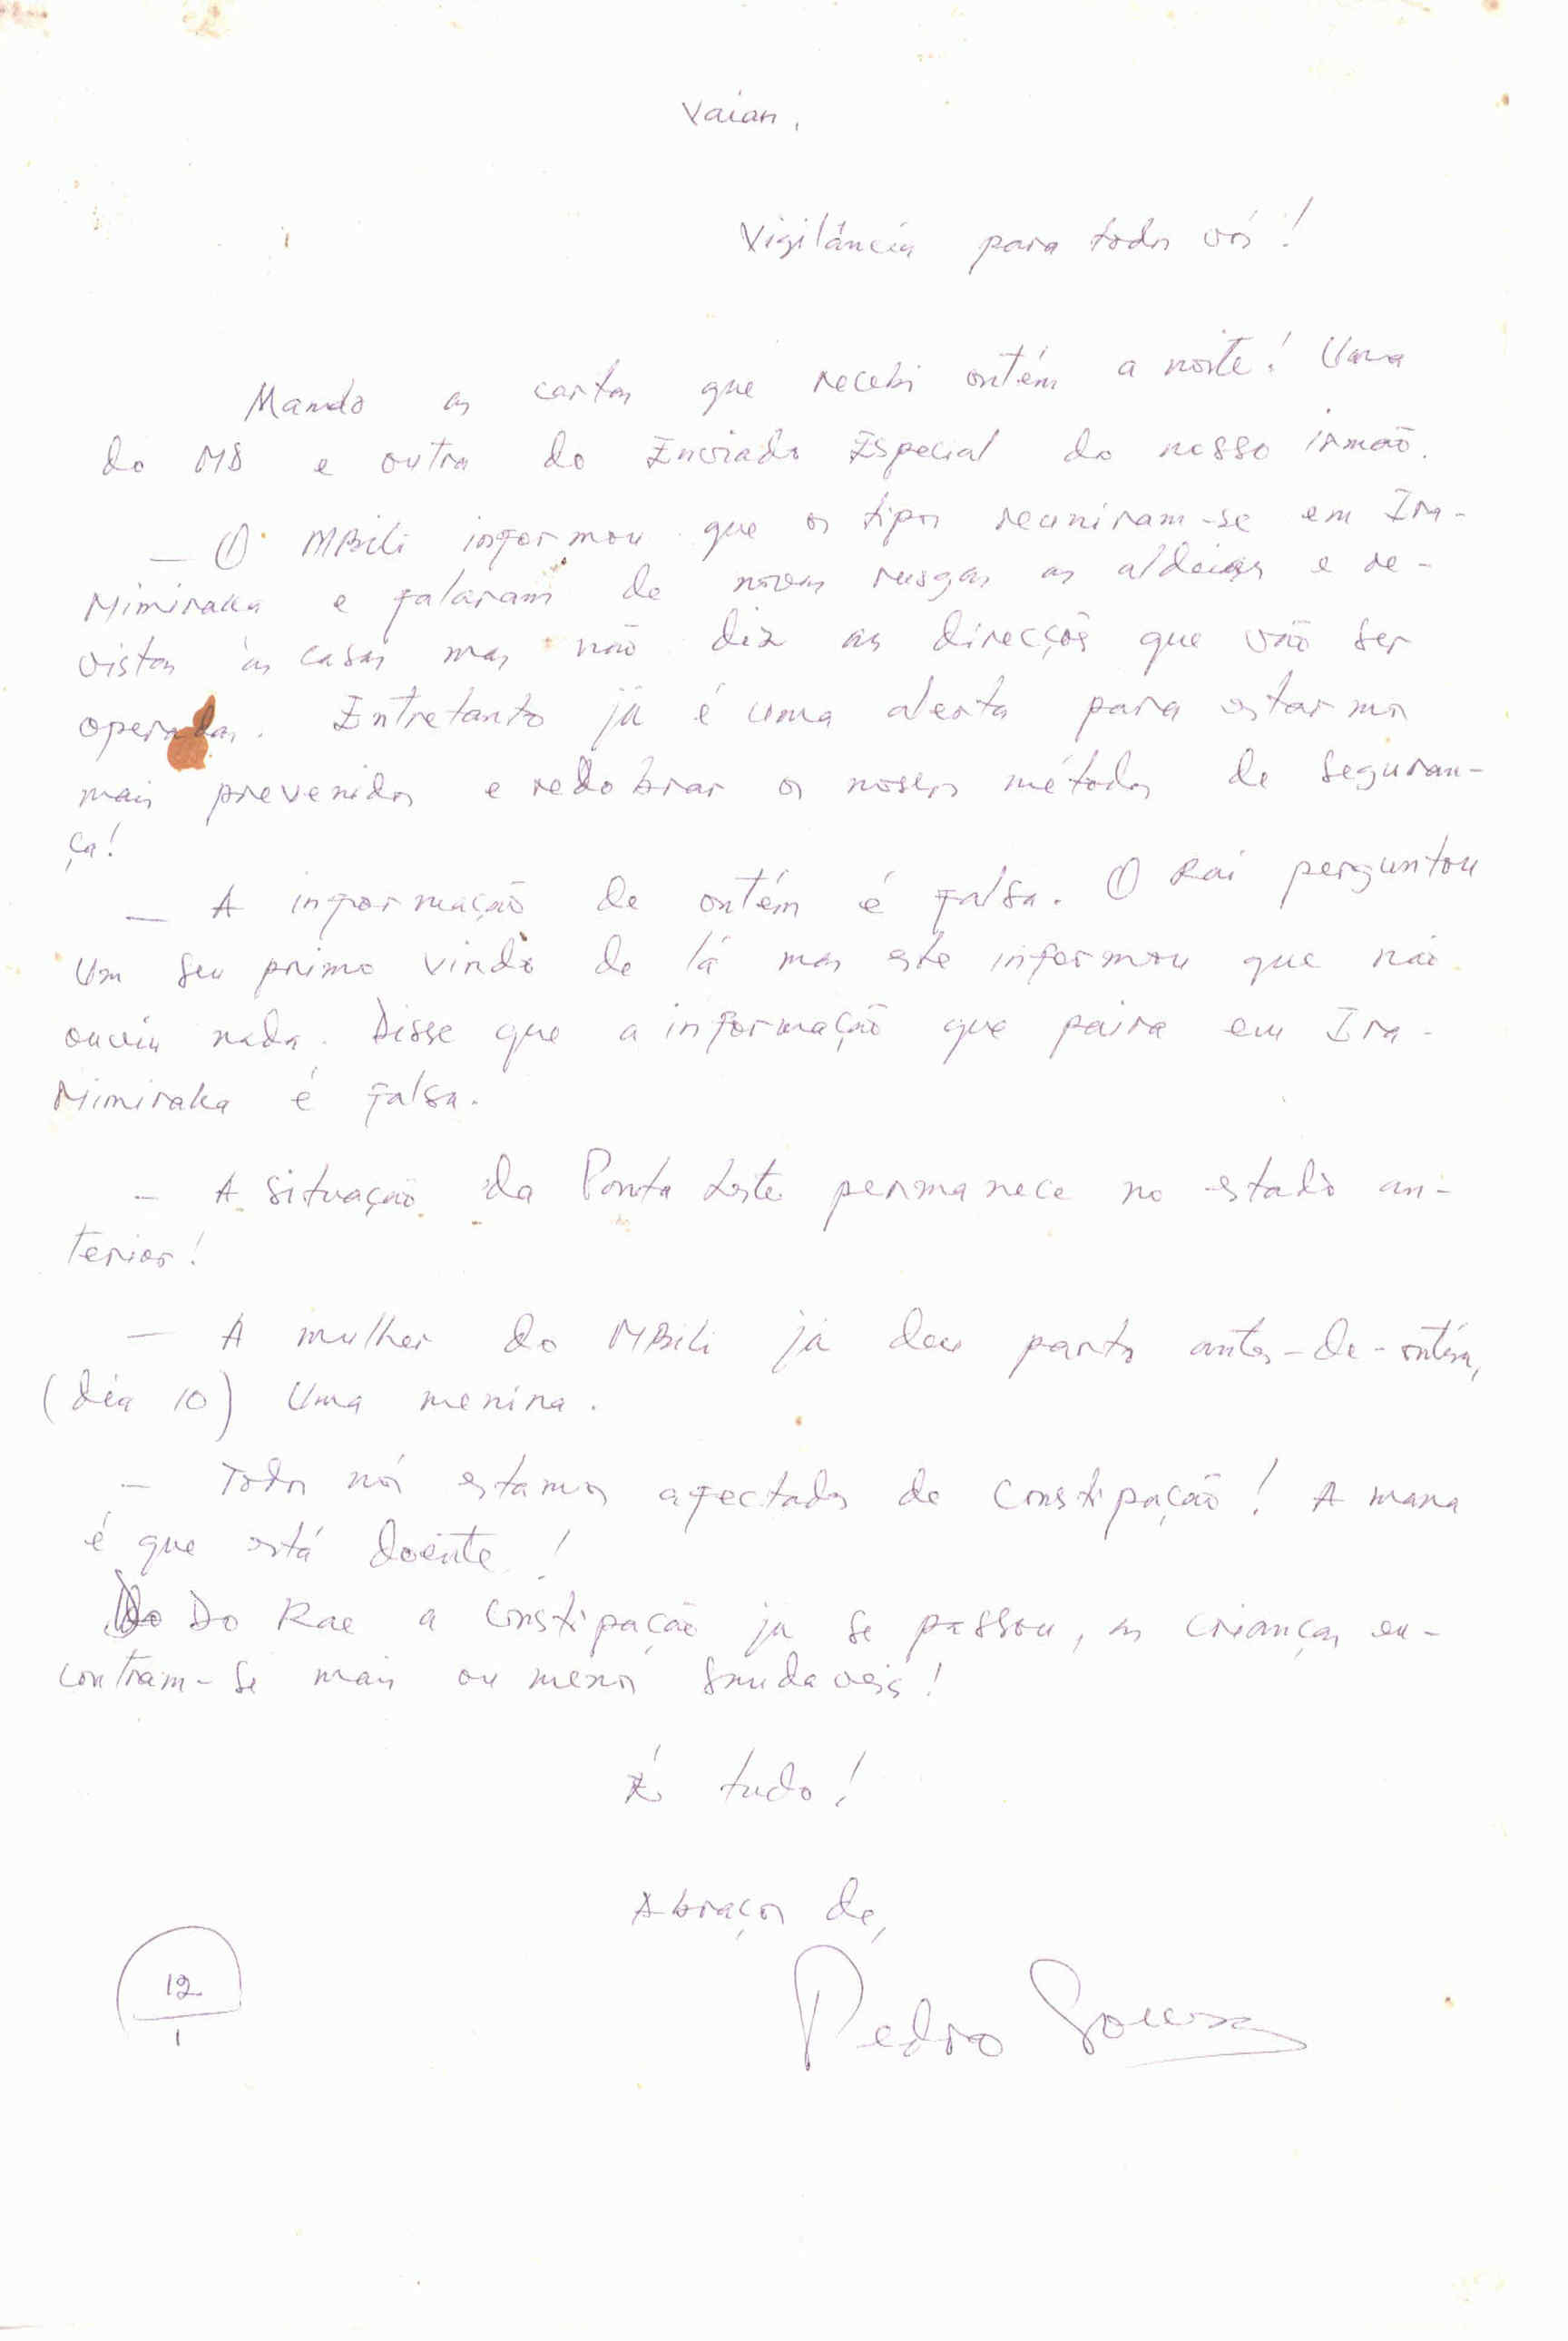 Vaian,
Vigilância para todos vós!
Mando as cartas que recebi ontém a noite! Uma
do M8 e outra do Enviado Especial do nosso irmão.
— O MBili informou que os tipos reuniram-se em Ira-
Mimiraka e falaram de novas rusgas as aldeias e re-
vistas às casas mas não diz as direcções que vão ser
operadas. Entretanto já é uma alerta para estarmos
mais prevenidos e redobrar os nossos métodos de seguran-
ça!
— A informação de ontém é falsa. O Rai perguntou
um seu primo vindo de lá mas este informou que não
ouviu nada. Disse que a informação que paira em Ira-
Mimiraka é falsa.
— A situação da Ponta Leste permanece no estado an-
terior!
— A mulher do MBili já deu parto antes-de-ontém,
(dia 10) Uma menina.
— Todos nós estamos afectados de constipação! A mana
é que está doente!
Do Rae a constipação já se passou, as crianças en-
contram-se mais ou menos saudaveis!
É tudo!
Abraços de,
Pedro Sousa
12
1